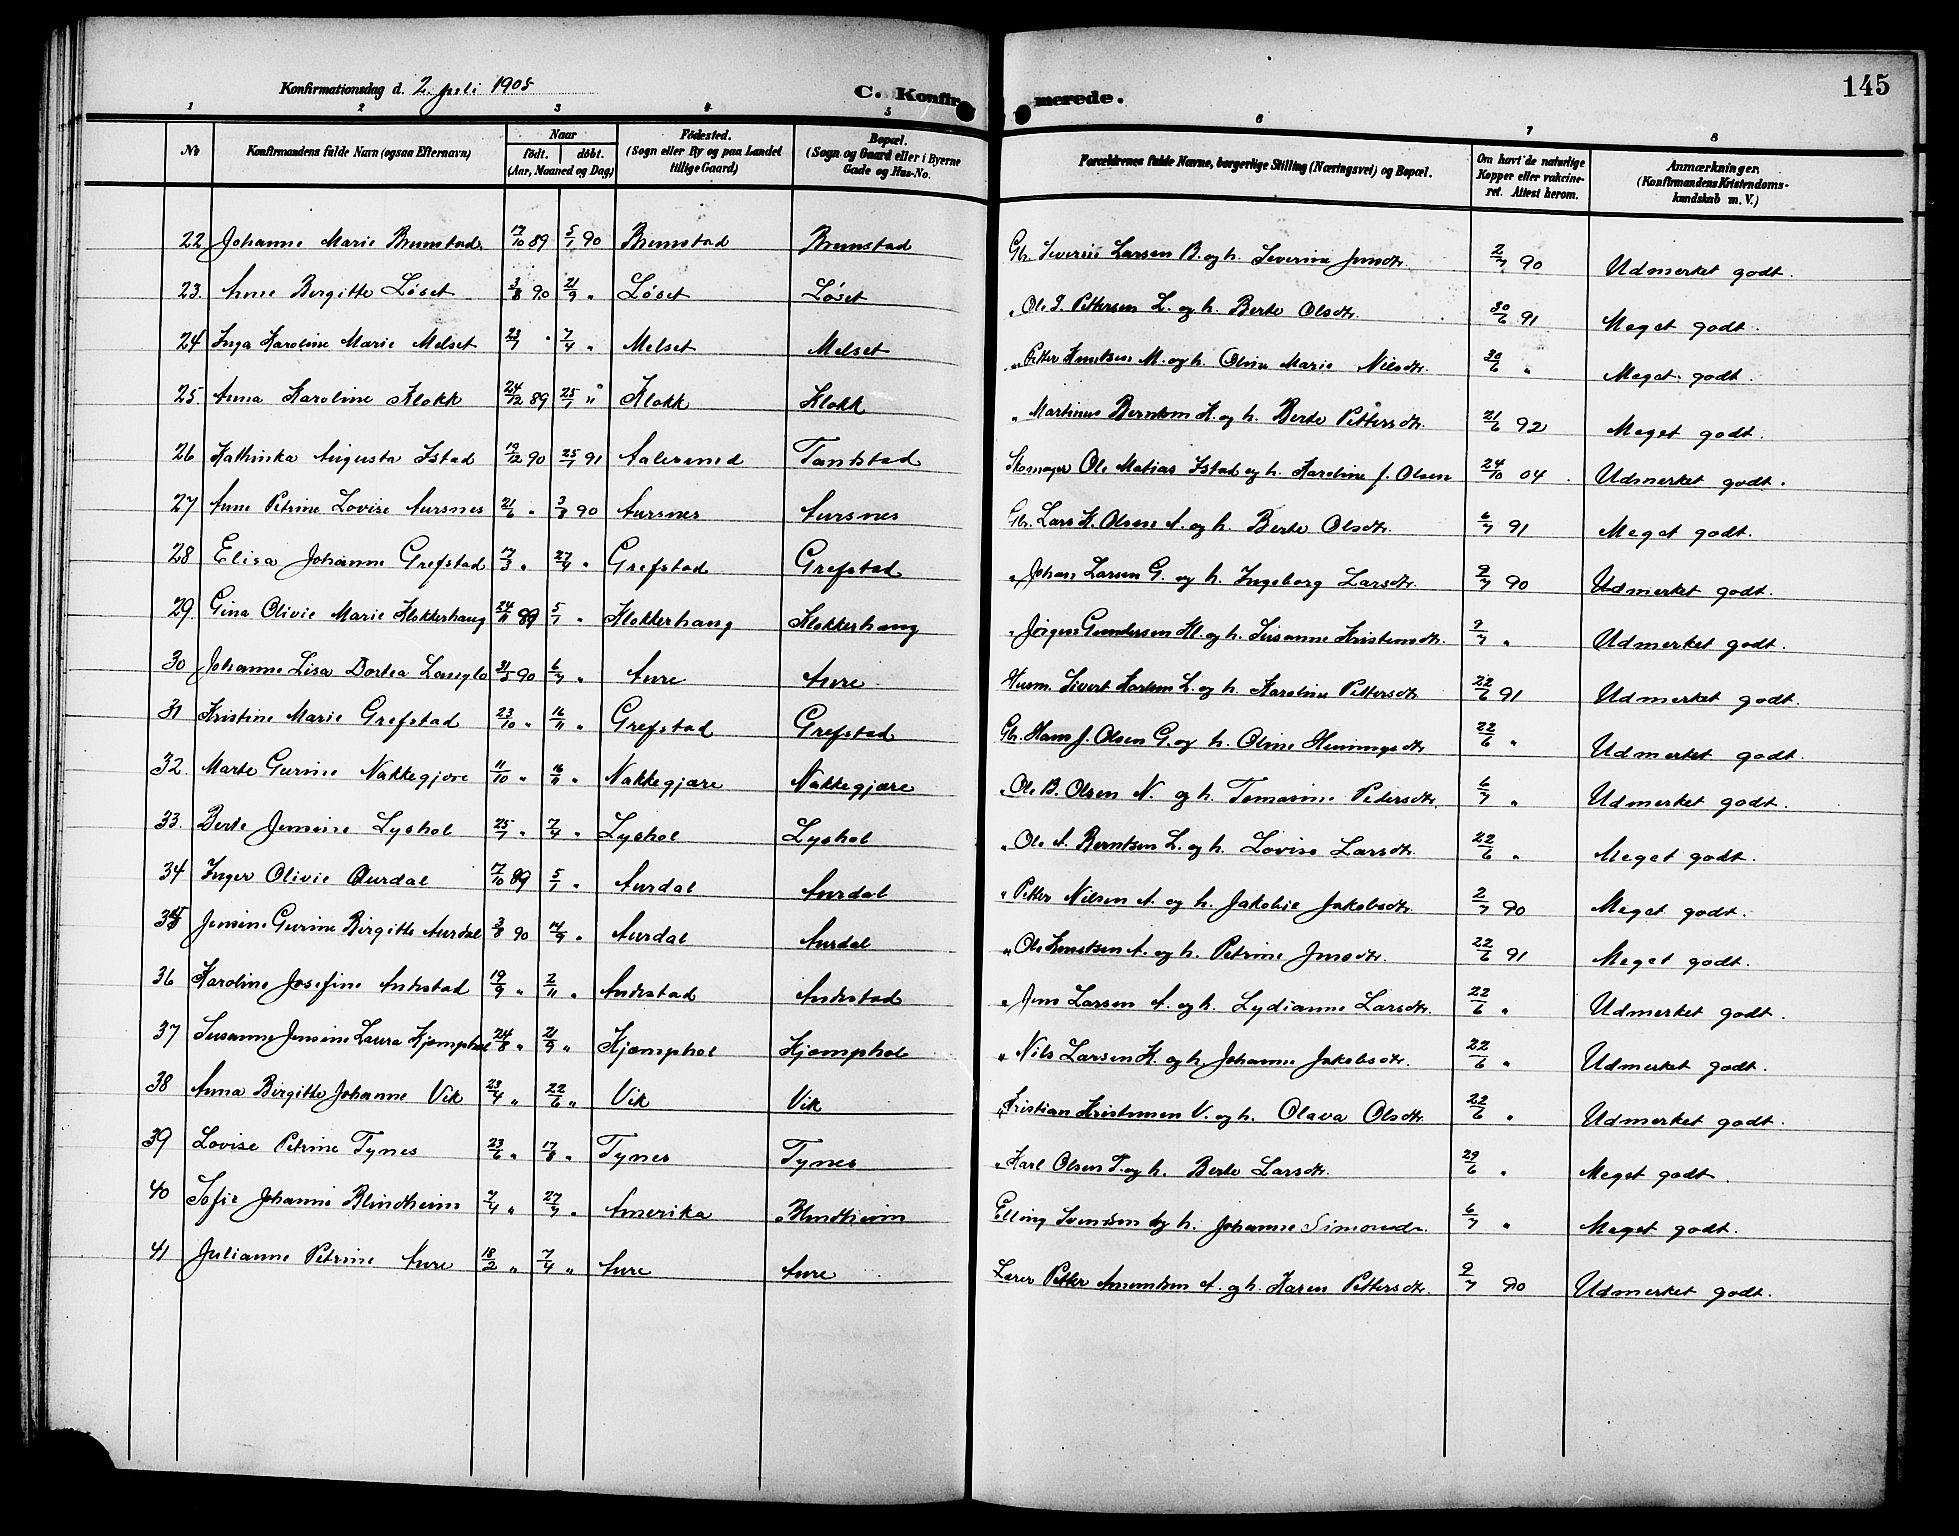 Konfirmationsdag d. 2. Juli 1905
C. Konfirmerede.
145
1 2 3 4 5 6 7 8
No
Konfirmandens fulde Navn (ogsaa Efternavn)
Naar
födt. döbt.
(Aar, Maaned og Dag)
Födested.
(Sogn eller By og paa Landet
tillige Gaard)
Bopæl.
(Sogn og Gaard eller i Byerne
Gade og Hus-No.
Forældrenes fulde Navne, borgerlige Stilling (Næringsvei) og Bopæl.
Om havt de naturlige
Kopper eller vakcine-
ret. Attest herom.
Anmærkninger.
(Konfirmandens Kristendoms-
kundskab m. V.)
22 Johanne Marie Brunstad 17/10 89 5/1 90 Brunstad Brunstad Gbr. Severin Larsen B. og h. Severine Jensdtr. 2/7 90 Udmerket godt.
23. Anne Birgitte Löset 3/8 90 21/9 " Löset Löset " Ole J. Pettersen L. og h. Berte Olsdtr. 30/6 91 Meget godt.
24 Inga Karoline Marie Melset 23/1 " 7/4 " Melset Melset " Petter Knutsen M. og h. Oline Marie Nilsdtr. 30/6 " Meget godt.
25. Anna Karoline Klokk 24/12 89 25/1 " Klokk Klokk " Martinus Berntsen K. og h. Berte Pettersdtr. 21/6 92 Meget godt.
26 Kathinka Augusta Istad 19/12 90 25/1 91 Aalesund Tandstad Skomager Ole Matias Istad og h. Karoline f. Olsen 24/10 04 Udmerket godt.
27 Anne Petrine Lovise Aursnes 21/6 " 3/8 90 Aursnes Aursnes Gbr. Lars K. Olsen A. og h. Berte Olsdtr. 6/7 91 Meget godt.
28 Elisa Johanne Grefstad 17/3 " 27/4 " Grefstad Grefstad " Johan Larsen G. og h. Ingeborg Larsdtr. 9/7 90 Udmerket godt.
29 Gina Olivie Marie Klokkerhaug 24/11 89 5/1 " Klokkerhaug Klokkerhaug " Jörgen Gundersen Kl. og h. Susanne Kristensdtr. 9/7 " Udmerket godt.
30 Johanne Lisa Dortea Langlo 31/5 90 6/7 " Aure Aure Husm. Sivert Karlsen L. og h. Karoline Pettersdtr 22/6 91 Udmerket godt.
31 Kristine Marie Grefstad 23/10 " 16/11 " Grefstad Grefstad Gbr. Hans J. Olsen G. og h. Oline Henningsdtr 22/6 " Udmerket godt.
32. Marte Gurine Nakkegjære 11/10 " 16/11 " Nakkegjære Nakkegjære " Ole B. Olsen N. og h. Tomasine Pedersdtr. 6/7 " Udmerket godt.
33. Berte Jensine Lyshol 25/1 " 7/4 " Lyshol Lyshol " Ole A. Berntsen L. og h. Lovise Larsdtr. 22/6 " Meget godt.
34 Inger Olivie Aurdal 17/10 89 5/1 " Aurdal Aurdal " Petter Nilsen A. og h. Jakobie Jakobsdtr. 2/7 90 Meget godt.
35 Jensine Gurine Birgitte Aurdal 3/8 90 14/9 " Aurdal Aurdal " Ole Knutsen A. og h. Petrine Jensdtr. 22/6 91 Meget godt.
36 Karoline Josefine Andestad 19/9 " 2/11 " Andestad Andestad " Jens Larsen A. og h. Lydianne Larsdtr. 22/6 " Udmerket godt.
37 Susanne Jensine Laura Kjæmphol 24/8 " 21/9 " Kjæmphol Kjæmphol " Nils Larsen K. og h. Johanne Jakobsdtr. 22/6 " Udmerket godt.
38 Anna Birgitte Johanne Vik 23/4 " 22/6 " Vik Vik " Kristian Kristensen V. og h. Olava Olsdtr. 22/6 " Udmerket godt.
39 Lovise Petrine Tynes 23/6 " 17/8 " Tynes Tynes " Karl Olsen T. og h. Berte Larsdtr. 29/6 " Meget godt.
40 Sofie Johanne Blindheim 7/4 " 27/7 " Amerika Blindheim Elling Svendsen og h. Johanne Simonsdr. 6/7 " Meget godt.
41 Julianne Petrine Aure 18/2 " 7/4 " Aure Aure Lærer Petter Amundsen A. og h. Karen Pettersdtr. 9/7 90 Udmerket godt.